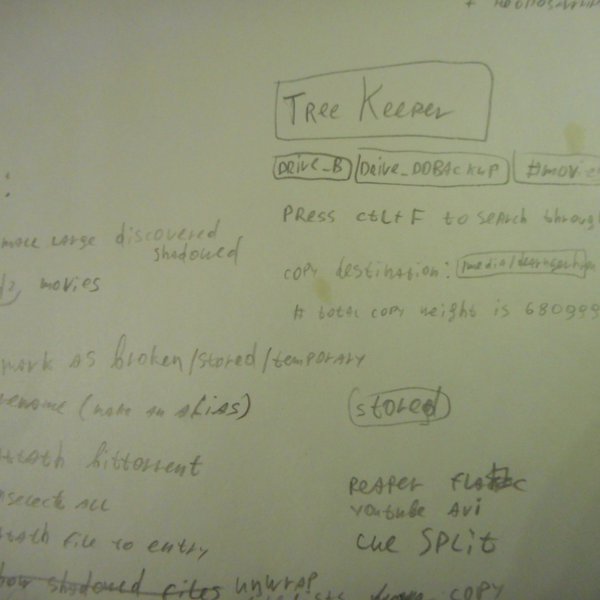 Tree Keeper
Drive_B Drive_DDBackup #movie
Press ctrl+F to search through
make large discovered
shadowed
movies
copy destination: media/
# total copy weight is 680999
mark as broken/stored/temporary
rename (make an alias)
stored
attach bittorrent
Reaper
unselect all
youtube avi
attach file to entry
cue split
how shadowed files unwrap
copy